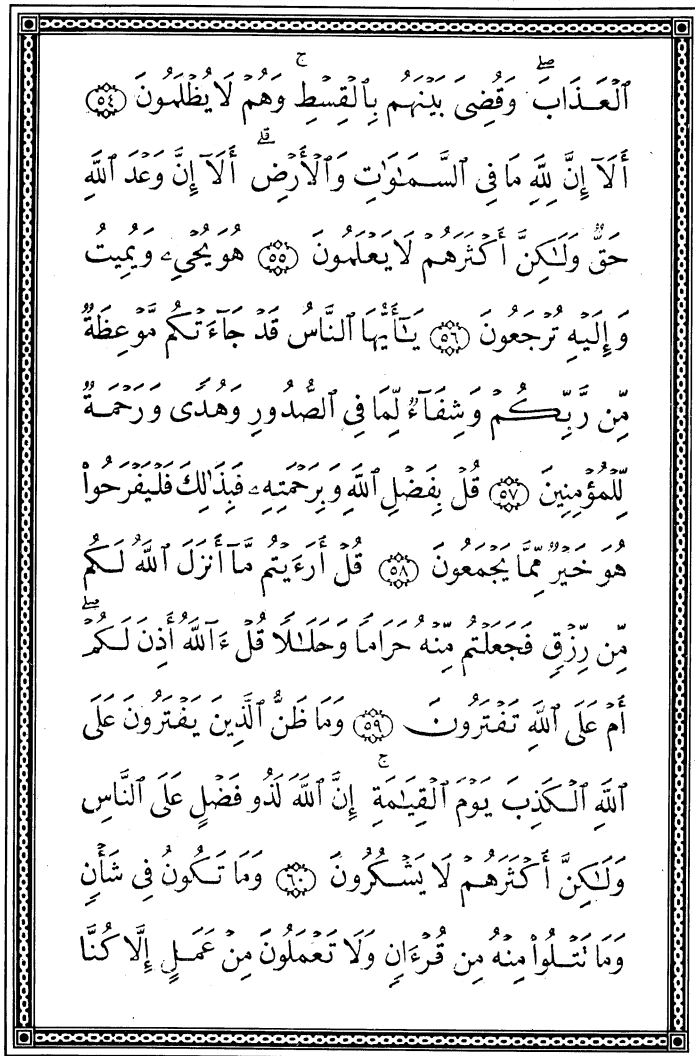 ٱلۡعَذَابَۖ وَقُضِيَ بَيۡنَهُم بِٱلۡقِسۡطِۚ وَهُمۡ لَا يُظۡلَمُونَ ٥٤
أَلَآ إِنَّ لِلَّهِ مَا فِي ٱلسَّمَٰوَٰتِ وَٱلۡأَرۡضِۗ أَلَآ إِنَّ وَعۡدَ ٱللَّهِ
حَقّٞ وَلَٰكِنَّ أَكۡثَرَهُمۡ لَا يَعۡلَمُونَ ٥٥ هُوَ يُحۡيِۦ وَيُمِيتُ
وَإِلَيۡهِ تُرۡجَعُونَ ٥٦ يَٰٓأَيُّهَا ٱلنَّاسُ قَدۡ جَآءَتۡكُم مَّوۡعِظَةٞ
مِّن رَّبِّكُمۡ وَشِفَآءٞ لِّمَا فِي ٱلصُّدُورِ وَهُدٗى وَرَحۡمَةٞ
لِّلۡمُؤۡمِنِينَ ٥٧ قُلۡ بِفَضۡلِ ٱللَّهِ وَبِرَحۡمَتِهِۦ فَبِذَٰلِكَ فَلۡيَفۡرَحُواْ
هُوَ خَيۡرٞ مِّمَّا يَجۡمَعُونَ ٥٨ قُلۡ أَرَءَيۡتُم مَّآ أَنزَلَ ٱللَّهُ لَكُم
مِّن رِّزۡقٖ فَجَعَلۡتُم مِّنۡهُ حَرَامٗا وَحَلَٰلٗا قُلۡ ءَآللَّهُ أَذِنَ لَكُمۡۖ
أَمۡ عَلَى ٱللَّهِ تَفۡتَرُونَ ٥٩ وَمَا ظَنُّ ٱلَّذِينَ يَفۡتَرُونَ عَلَى
ٱللَّهِ ٱلۡكَذِبَ يَوۡمَ ٱلۡقِيَٰمَةِۚ إِنَّ ٱللَّهَ لَذُو فَضۡلٍ عَلَى ٱلنَّاسِ
وَلَٰكِنَّ أَكۡثَرَهُمۡ لَا يَشۡكُرُونَ ٦٠ وَمَا تَكُونُ فِي شَأۡنٖ
وَمَا تَتۡلُواْ مِنۡهُ مِن قُرۡءَانٖ وَلَا تَعۡمَلُونَ مِنۡ عَمَلٍ إِلَّا كُنَّا